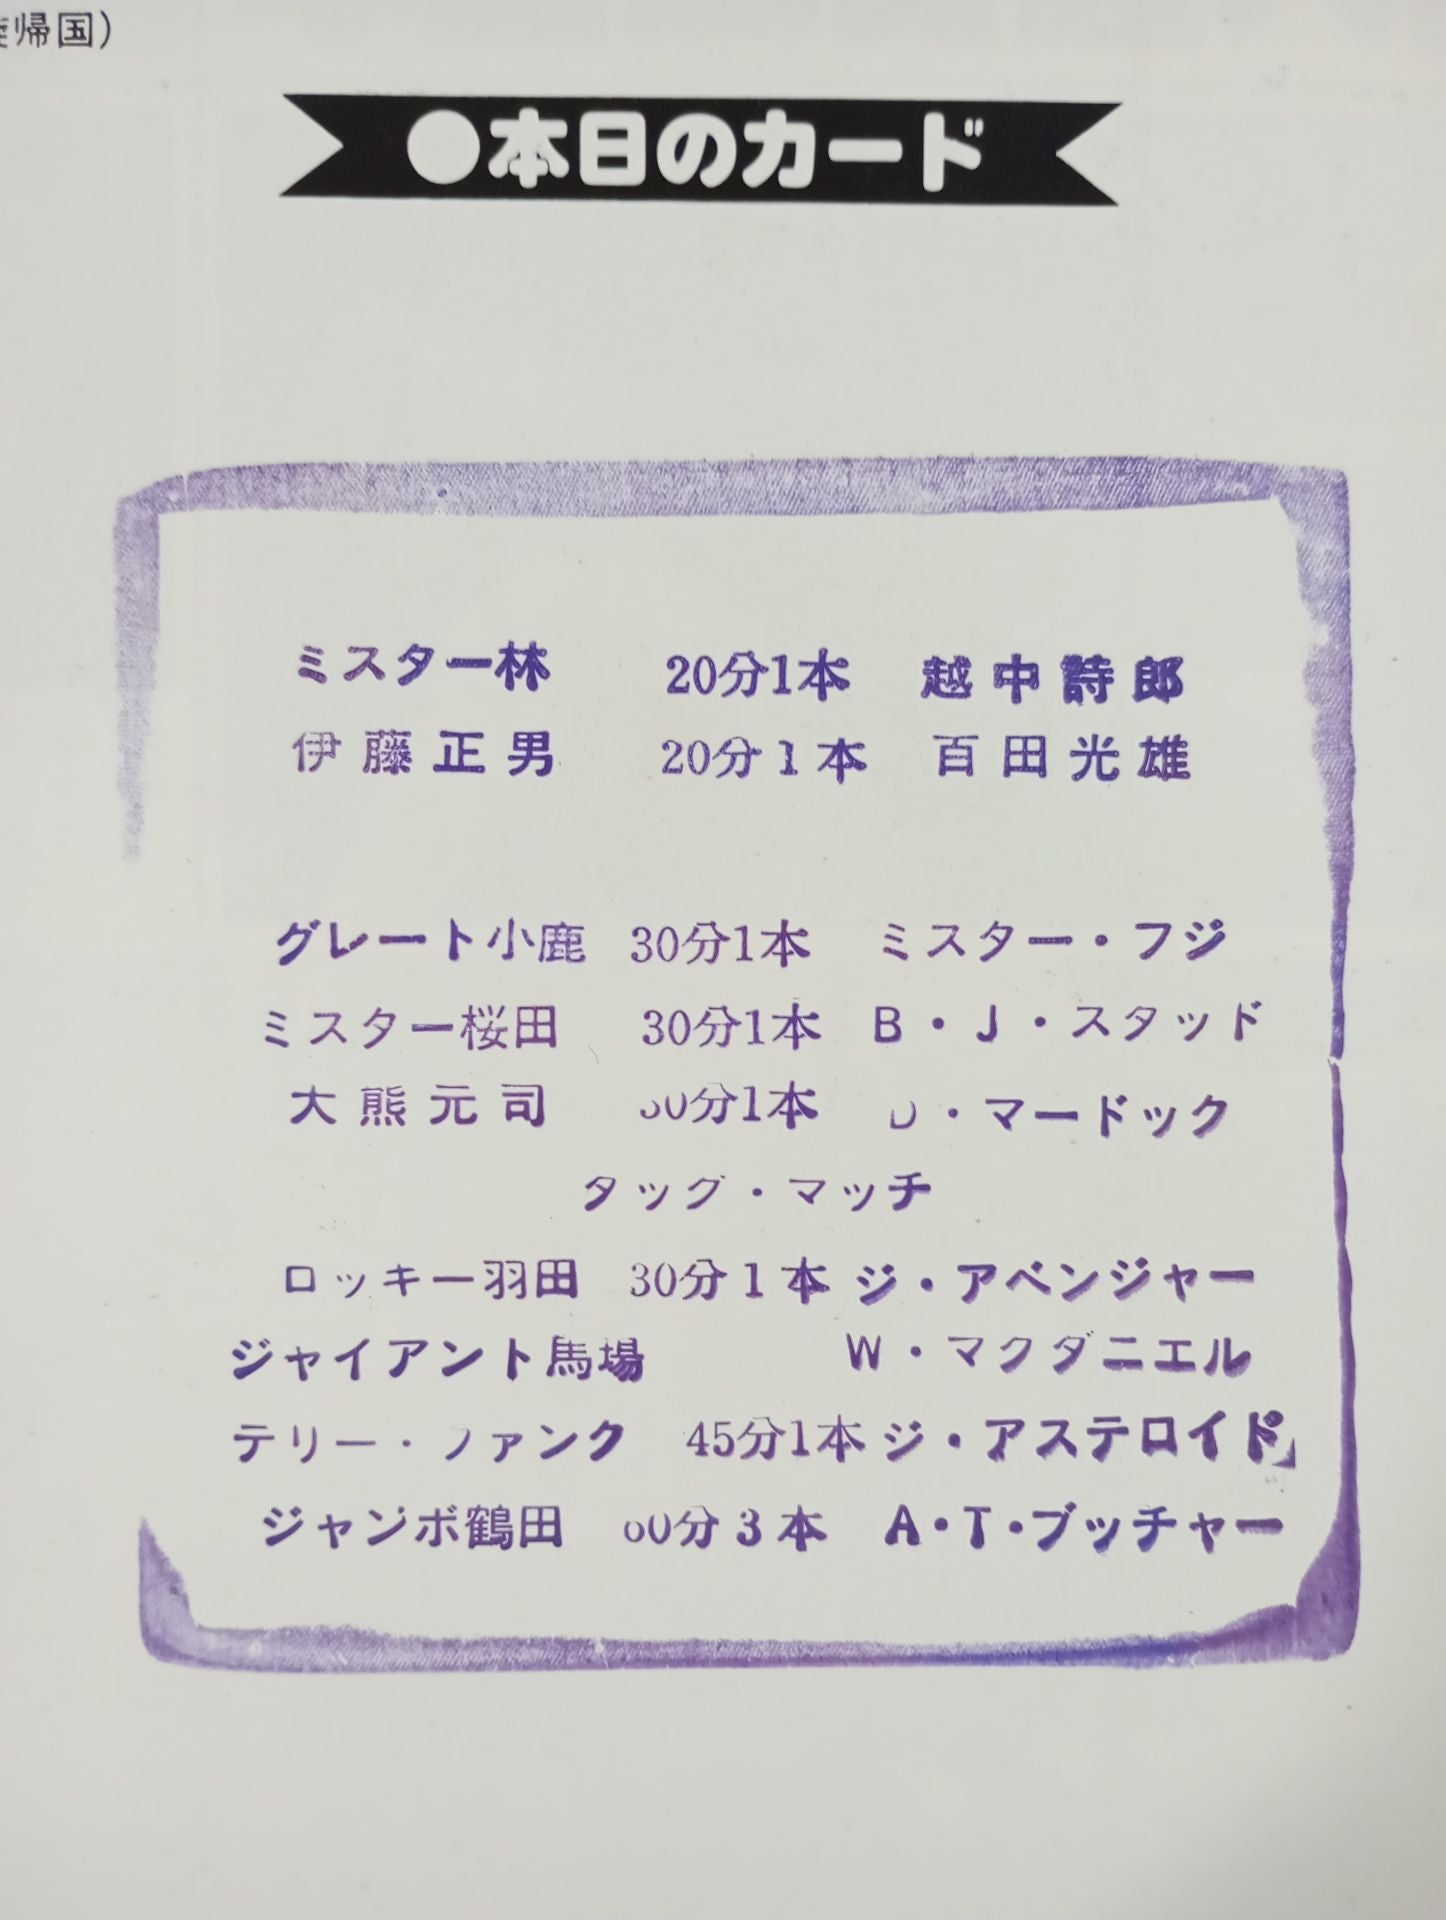 帰国）
●本日のカード
ミスター林 20分1本 越中詩郎
伊藤正男 20分1本 百田光雄
グレート小鹿 30分1本 ミスター・フジ
ミスター桜田 30分1本 B・J・スタッド
大熊元司 30分1本 D・マードック
タッグ・マッチ
ロッキー羽田 30分1本 ジ・アベンジャー
ジャイアント馬場 W・マクダニエル
テリー・ファンク 45分1本 ジ・アステロイド
ジャンボ鶴田 60分3本 A・T・ブッチャー